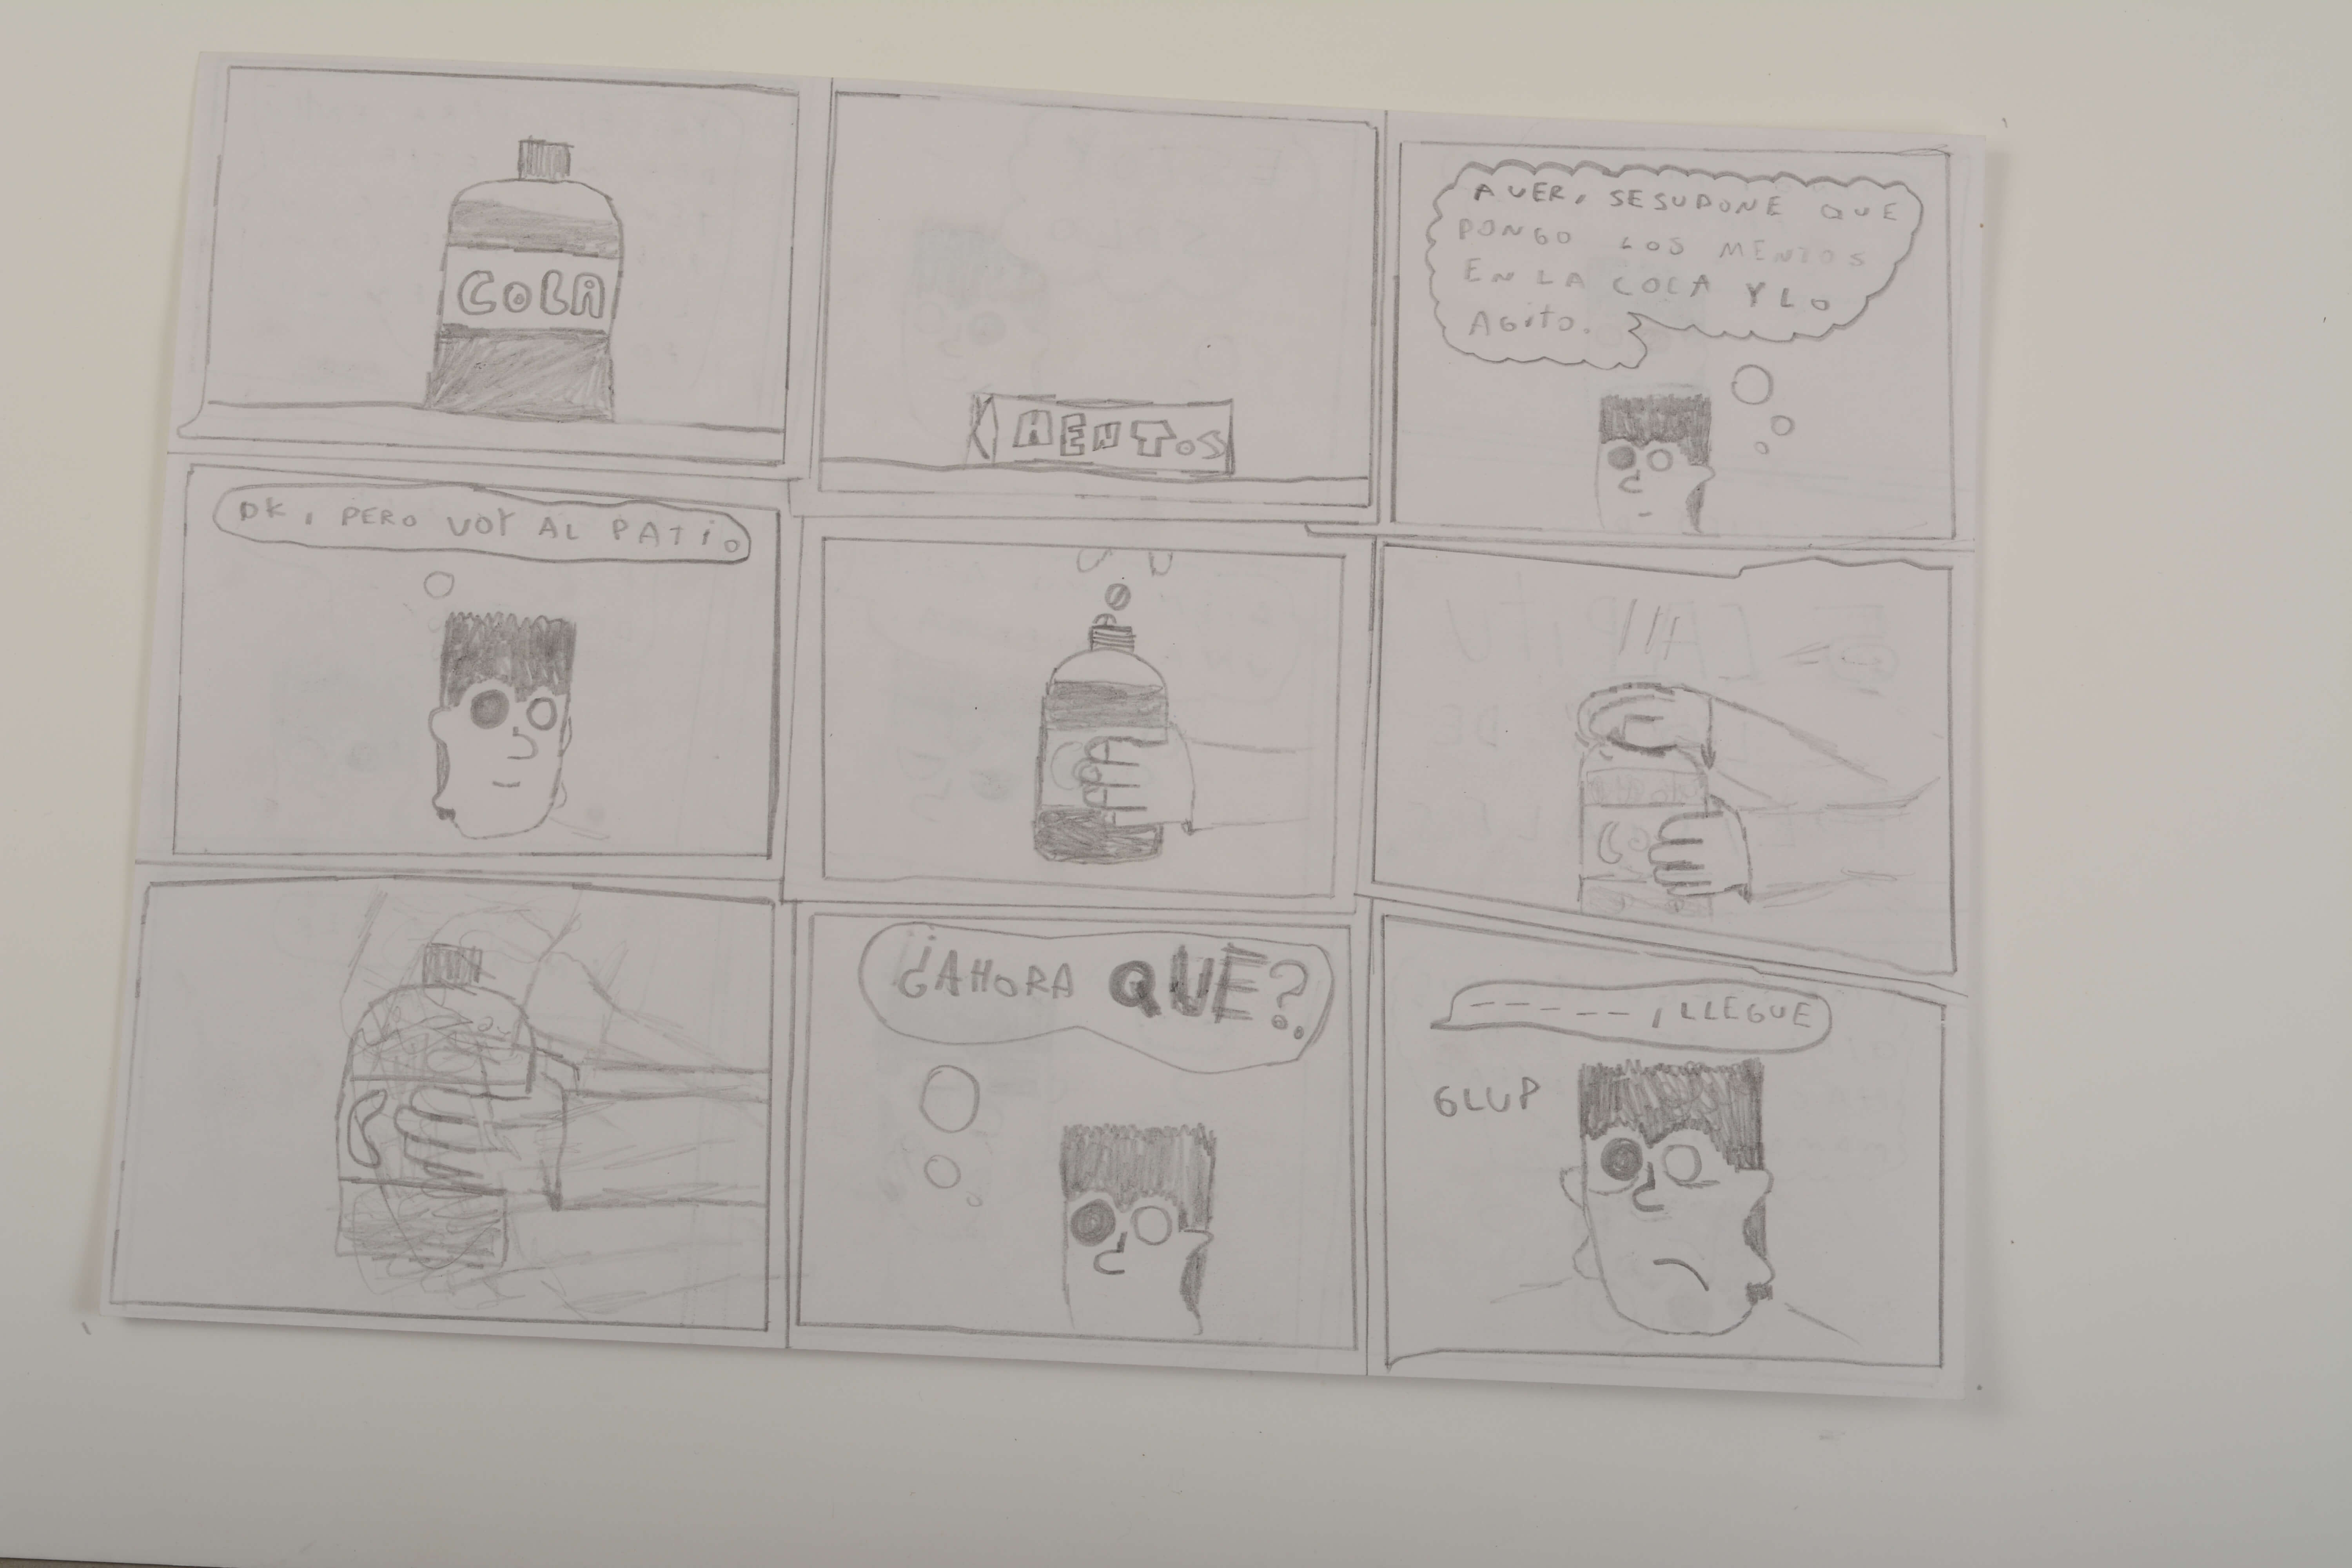 COLA
MENTOS
A VER, SE SUPONE QUE
PONGO LOS MENTOS
EN LA COCA Y LO
AGITO.
OK, PERO VOY AL PATIO
¿AHORA QUE?
-----, LLEGUE
GLUP